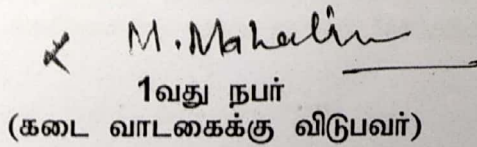 M. Mahalin
1வது நபர்
(கடை வாடகைக்கு விடுபவர்)